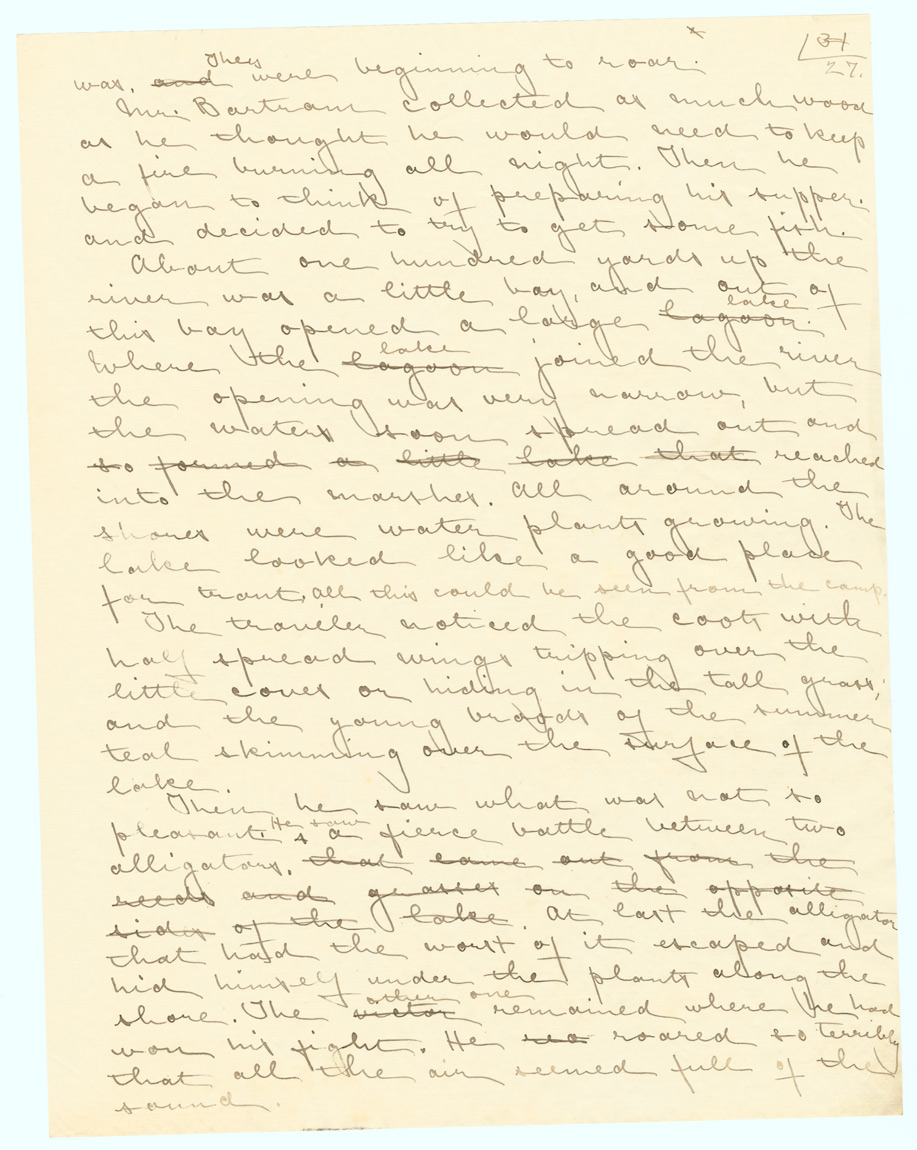 31
27.
was, and They were beginning to roar. x
Mr. Bartram collected as much wood
as he thought he would need to keep
a fire burning all night. Then he
began to think of preparing his supper.
and decided to try to get some fish.
About one hundred yards up the
river was a little bay, and out of
this bay opened a large lagoon lake.
Where the lagoon lake joined the river
the opening was very narrow, but
the waters soon spread out and
so formed a little lake that reached
into the marshes. All around the
shores were water plants growing. The
lake looked like a good place
for trout. All this could be seen from the camp.
The traveler noticed the coots with
half spread wings tripping over the
little coves or hiding in the tall grass;
and the young broods of the summer
teal skimming over the surface of the
lake.
Then he saw what was not so
pleasant. He saw a fierce battle between two
alligators. that came out from the
reeds and grasses on the opposite
sides of the lake. At last the alligator
that had the worst of it escaped and
hid himself under the plants along the
shore. The victor other one remained where he had
won his fight. He roared so terribly
that all the air seemed full of the
sound.